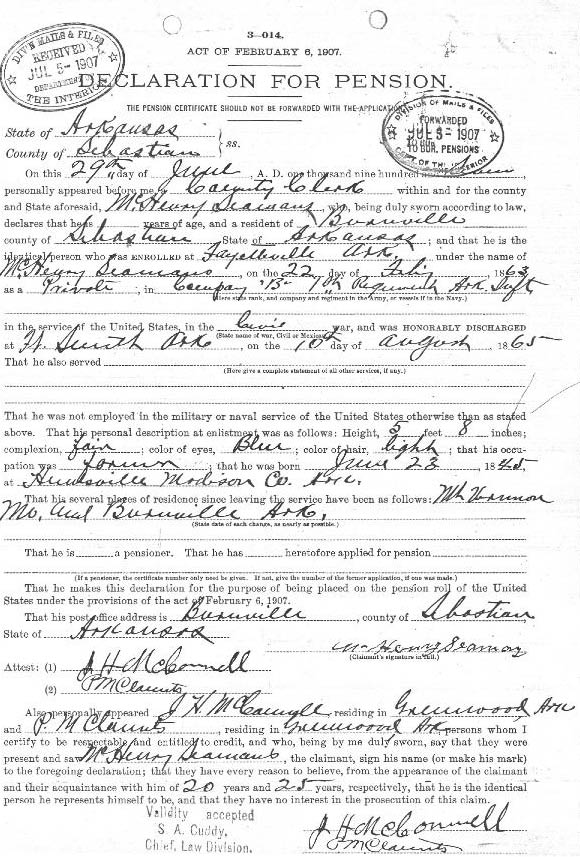 3—014.
ACT OF FEBRUARY 6, 1907.
DIV'N MAILS & FILES
RECEIVED
JUL 5- 1907
DEPARTMENT
THE INTERIOR
DECLARATION FOR PENSION.
THE PENSION CERTIFICATE SHOULD NOT BE FORWARDED WITH THE APPLICATION
DIVISION OF MAILS & FILES
FORWARDED
JUL 5- 1907
TO BUR. PENSIONS
DEPT. OF THE INTERIOR
State of Arkansas
County of Sebastian } ss.
On this 29th day of June, A. D. one thousand nine hundred seven
personally appeared before me, County Clerk within and for the county
and State aforesaid, McHenry Seamans, who, being duly sworn according to law,
declares that he is years of age, and a resident of Burnville
county of Sebastian, State of Arkansas; and that he is the
identical person who was ENROLLED at Fayetteville Ark, under the name of
McHenry Seamans, on the 22 day of Feby, 1863,
as a Private, in Company "B" 1st Regiment Ark. Inft
(Here state rank, and company and regiment in the Army, or vessels if in the Navy.)
in the service of the United States, in the Civil war, and was HONORABLY DISCHARGED
(State name of war, Civil or Mexican)
at Ft. Smith Ark, on the 10th day of August, 1865
That he also served
(Here give a complete statement of all other services, if any.)
That he was not employed in the military or naval service of the United States otherwise than as stated
above. That his personal description at enlistment was as follows: Height, 5 feet 8 inches;
complexion, Fair; color of eyes, Blue; color of hair, light; that his occu-
pation was Farmer; that he was born June 23 1845
at Huntsville Madison Co. Ark.
That his several places of residence since leaving the service have been as follows: Mt Vernon
Mo. and Burnville Ark.
(State date of each change, as nearly as possible.)
That he is a pensioner. That he has heretofore applied for pension
(If a pensioner, the certificate number only need be given. If not, give the number of the former application, if one was made.)
That he makes this declaration for the purpose of being placed on the pension roll of the United
States under the provisions of the act of February 6, 1907.
That his post office address is Burnville, county of Sebastian,
State of Arkansas
McHenry Seamans
(Claimant's signature in full.)
Attest: (1) J H McConnell
(2) P McClaunts
Also personally appeared J H McConnell, residing in Greenwood, Ark
and P. McClaunts, residing in Greenwood Ark persons whom I
certify to be respectable and entitled to credit, and who, being by me duly sworn, say that they were
present and saw McHenry Seamans, the claimant, sign his name (or make his mark)
to the foregoing declaration; that they have every reason to believe, from the appearance of the claimant
and their acquaintance with him of 20 years and 25 years, respectively, that he is the identical
person he represents himself to be, and that they have no interest in the prosecution of this claim.
Validity accepted
S. A. Cuddy,
Chief, Law Division.
J H McConnell
P McClaunts